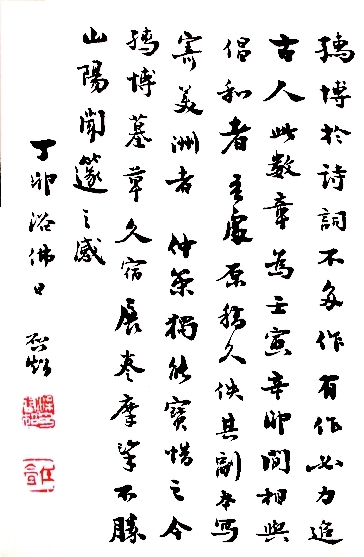 孺博於詩詞不多作有作必力追
古人此數章為壬寅癸卯間相與
倡和者吾處原稿久佚其副本寫
寄美洲者仲策獨能寶惜之今
孺博墓草久宿展卷摩挲不勝
山陽聞篴之感
丁卯浴佛日 啟超